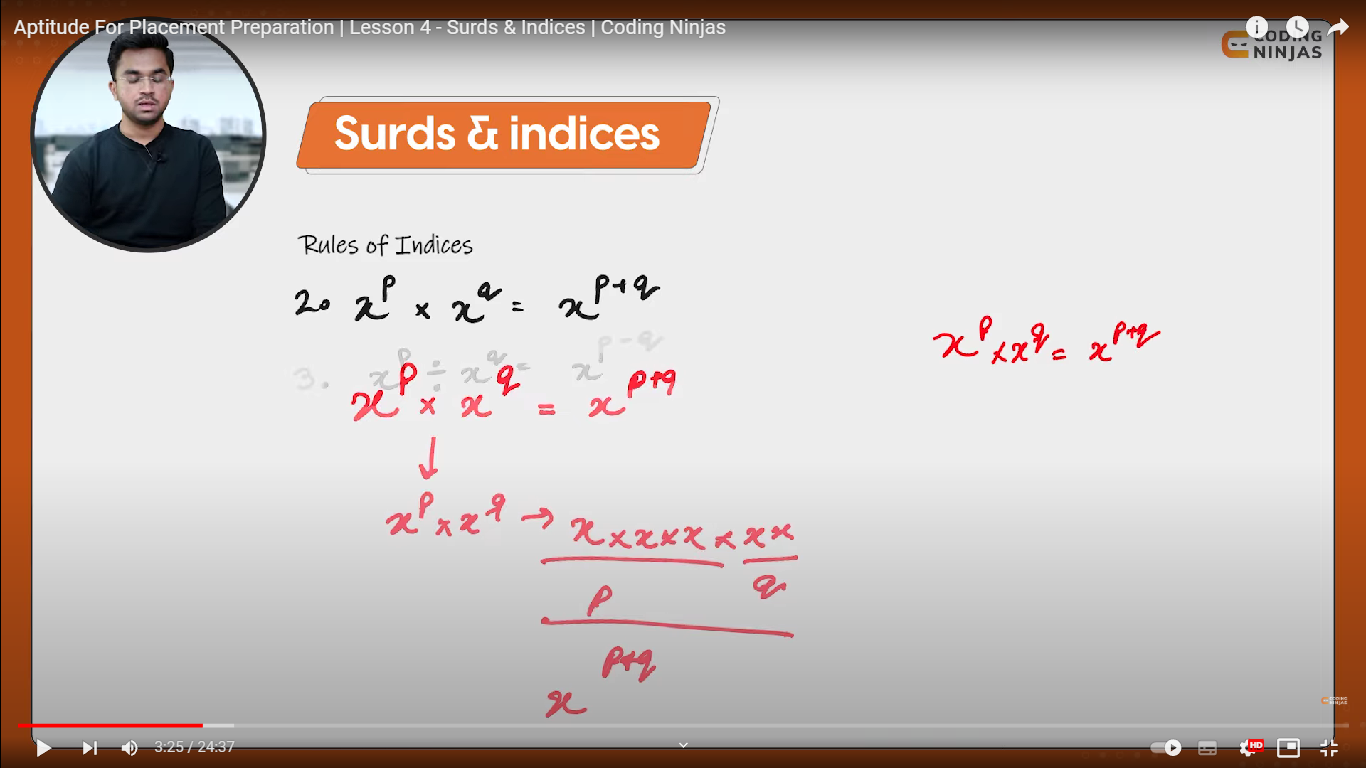 Aptitude For Placement Preparation | Lesson 4 - Surds & Indices | Coding Ninjas
CODING
NINJAS
Surds & indices
Rules of Indices
2. x^p × x^q = x^(p+q)
x^p × x^q = x^(p+q)
3. x^p ÷ x^q = x^(p-q)
x^p × x^q = x^(p+q)
↓
x^p × x^q → x × x × x × x x
p q
x^(p+q)
CODING
NINJAS
3:25 / 24:37
HD